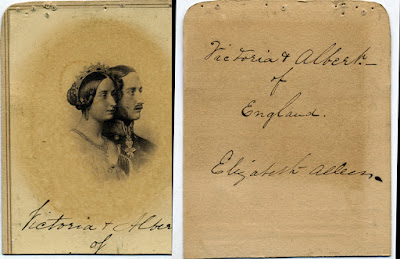 Victoria & Alber
of
Victoria & Albert
of
England.
Elizabeth Allen.